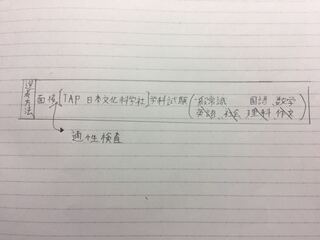 選考方法 面接[TAP 日本文化科学社]学科試験(一般常識 国語 数学
英語 社会 理科 作文)
適性検査